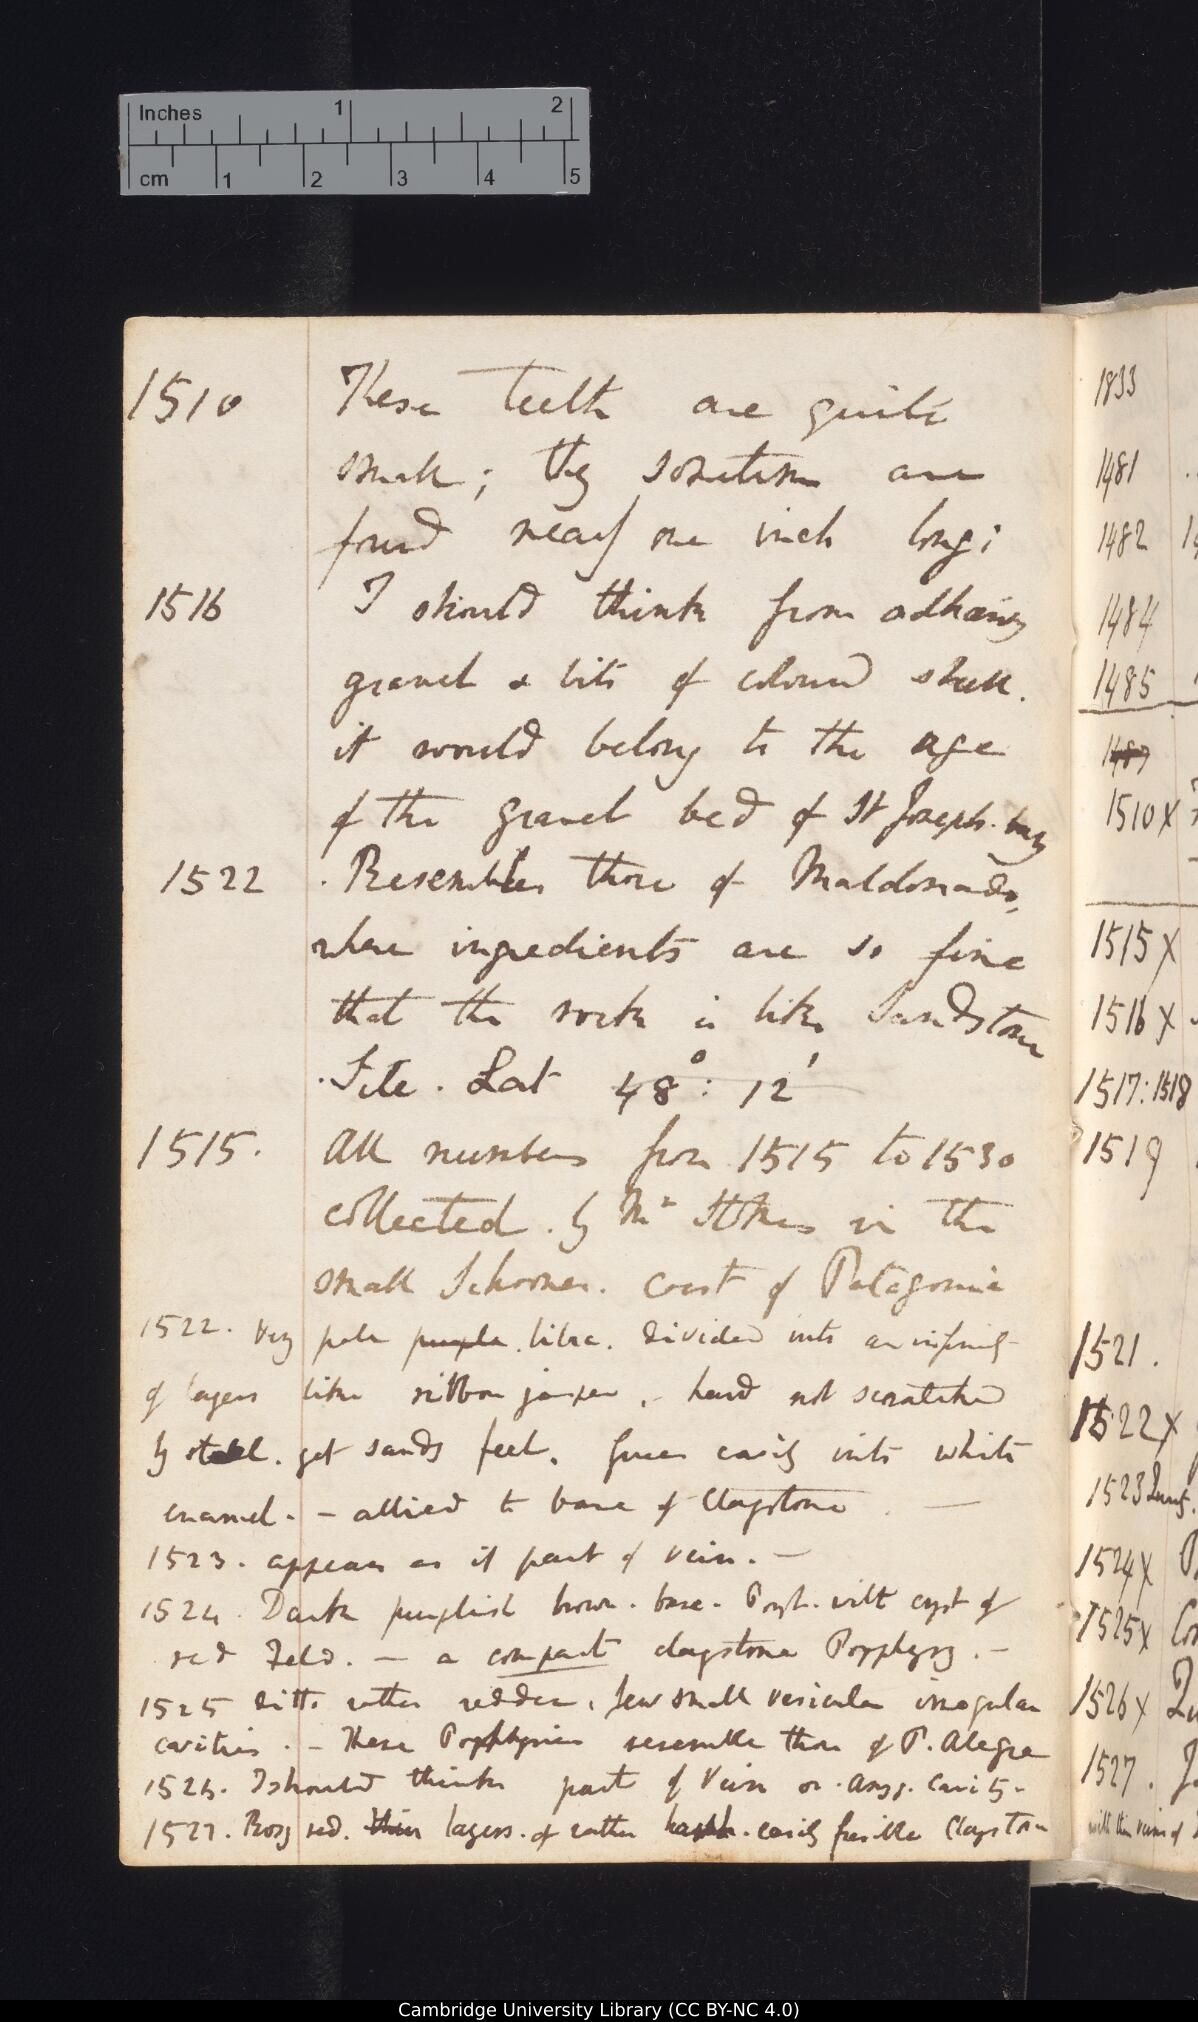 Inches 1 2
cm 1 2 3 4 5
1510 These teeth are quite
small; they sometimes are
found nearly one inch long;
1516 I should think from adhering
gravel & bits of coloured shell.
it would belong to the age
of the gravel bed of St Joseph. bay
1522 . Resembles those of Maldonado,
where ingredients are so fine
that the rock is like Sandstone
. Site. Lat 48°: 12'
1515. All numbers from 1515 to 1530
collected. by Mr Stokes in the
small Schooner. coast of Patagonia
1522. Very pale purple. lilac. divided into an infinity
of layers like ribbon jasper. - hard not scratched
by steel. yet sands feel. fuses easily into white
enamel. - allied to base of Claystone —
1523. appears as if part of vein. —
1524. Dark purplish brown. base. Porph. with cryst of
red Feld. - a compact claystone Porphyry. -
1525 ditto rather redder, few small vesicular irregular
cavities. - These Porphyries resemble those of P. Alegre
1526. I should think part of Vein or. Amyg. Cavity.
1527. Rosy red. thin layers. of rather harsh. easily fusible Claystone
1833
1481
1482
1484
1485
1487
1510 X
1515 X
1516 X
1517: 1518
1519
1521.
1522 X
1523
1524 X
1525 X
1526 X
1527.
with thin veins of
Cambridge University Library (CC BY-NC 4.0)